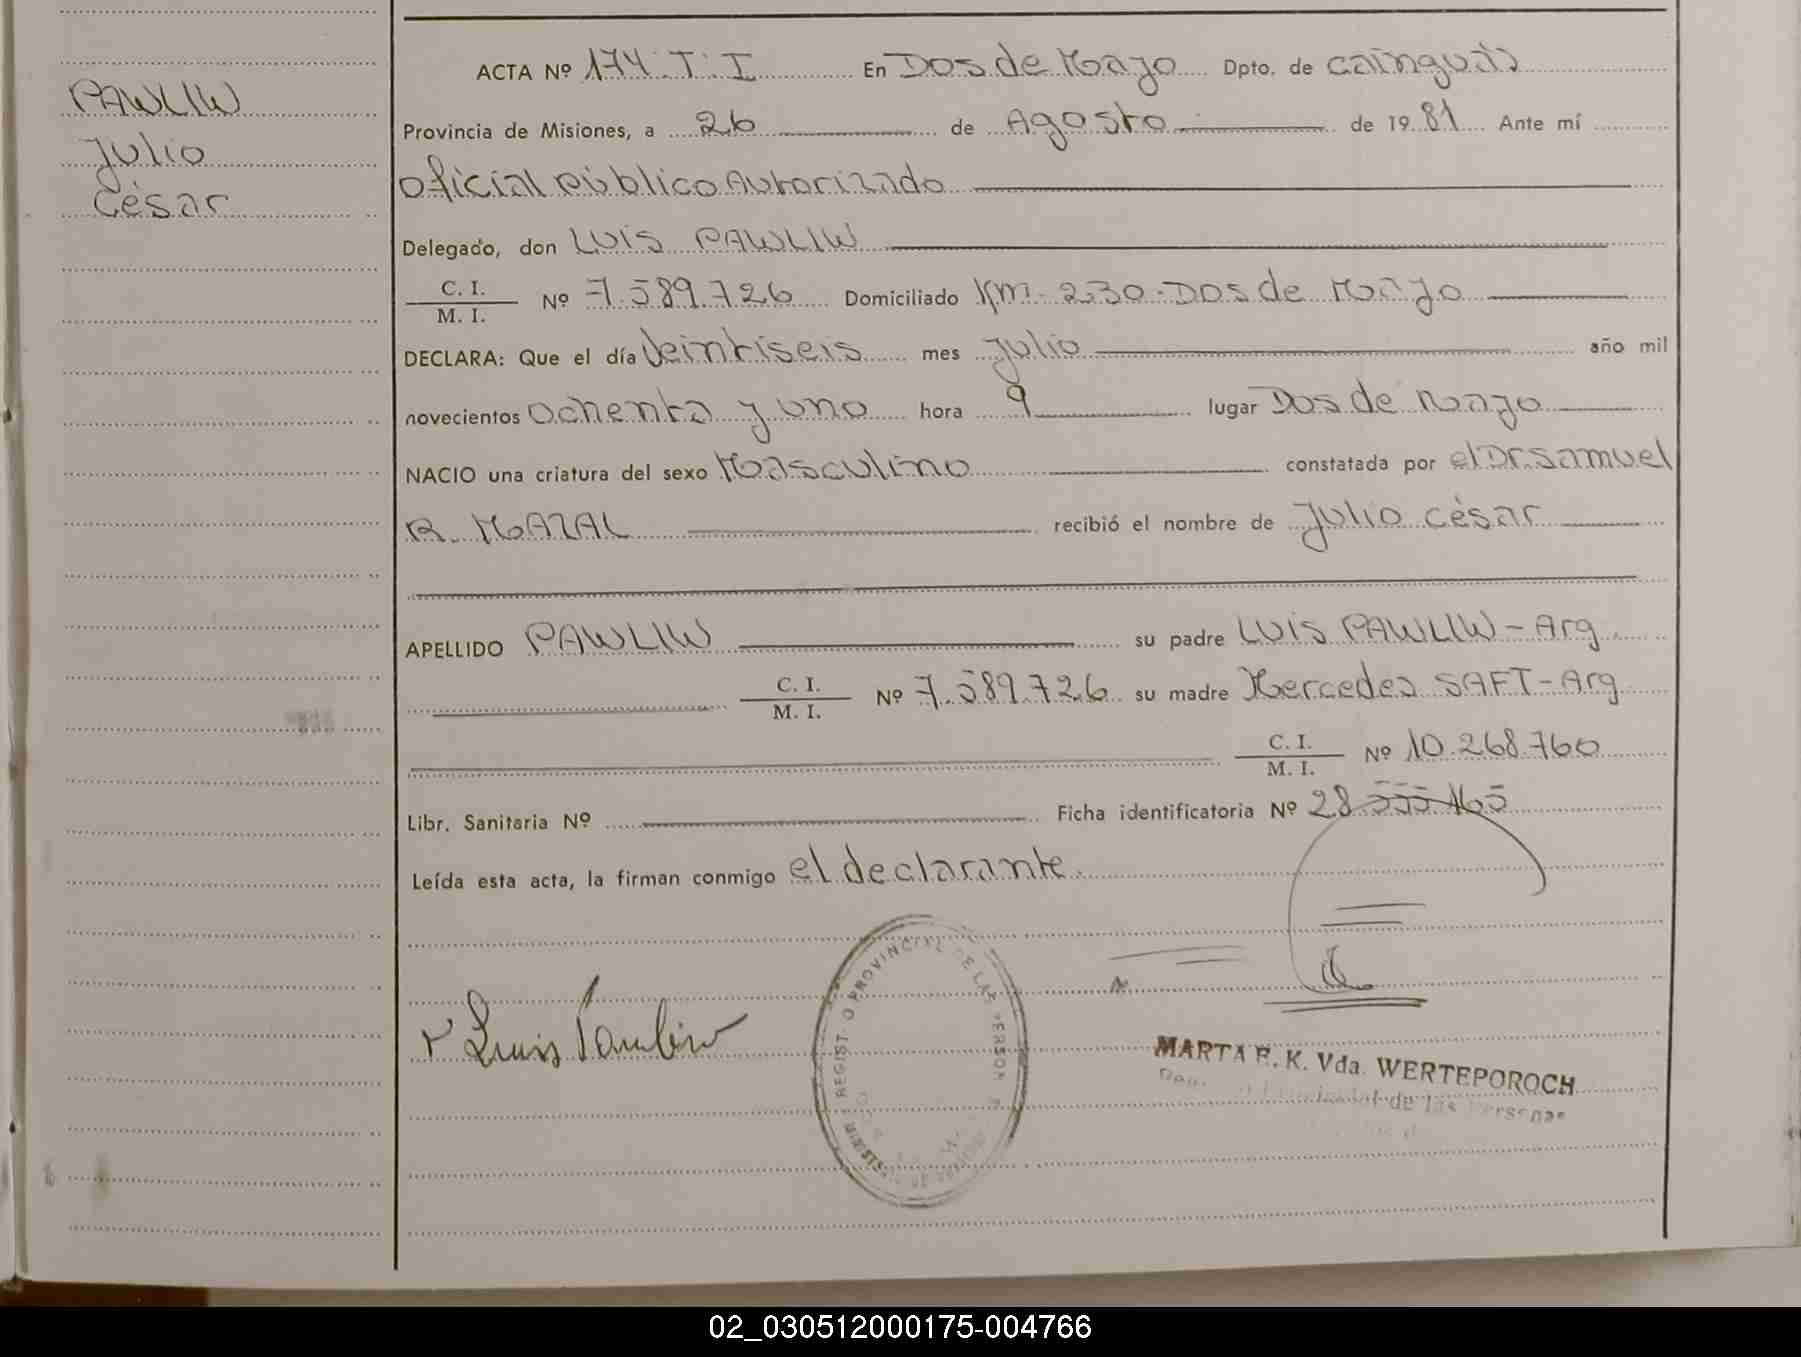 PAWLIW
Julio
César
ACTA Nº 174 T: I En Dos de Mayo Dpto. de Cainguás
Provincia de Misiones, a 26 de Agosto de 1981 Ante mí
Oficial Público Autorizado
Delegado, don LUIS PAWLIW
C. I.
M. I. Nº 7.589.726 Domiciliado Km. 230. Dos de Mayo
DECLARA: Que el día Veintiseis mes Julio año mil
novecientos ochenta y uno hora 9 lugar Dos de Mayo
NACIO una criatura del sexo Masculino constatada por el Dr. Samuel
R. MAZAL recibió el nombre de Julio César
APELLIDO PAWLIW su padre LUIS PAWLIW - Arg
C. I.
M. I. Nº 7.589.726 su madre Mercedes SAFT - Arg
C. I.
M. I. Nº 10.268.760
Libr. Sanitaria Nº Ficha identificatoria Nº 28.555.165
Leída esta acta, la firman conmigo el declarante.
Luis Pawliw
REGISTRO PROVINCIAL DE LAS PERSONAS
MARTA E. K. Vda. WERTEPOROCH
de las Personas
02_030512000175-004766